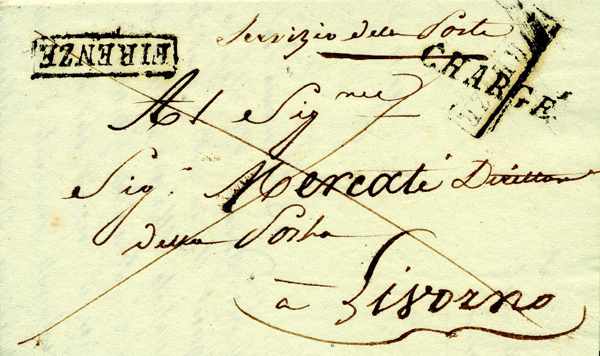 Servizio della Posta
FIRENZE
CHARGÉ
Al Sig.nre
Sig.r Mercati Direttore
della Posta
à Livorno